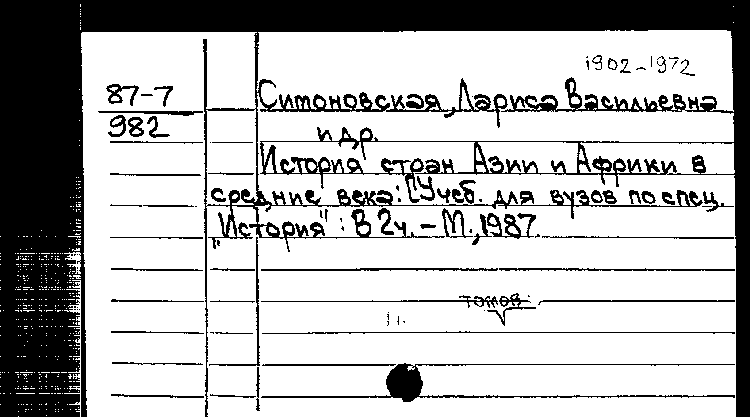 1902-1972
87-7 Симоновская, Лариса Васильевна
982
и др.
История стран Азии и Африки в
средние века: [Учеб. для вузов по спец.
"История": В 2ч. - М., 1987.
томов